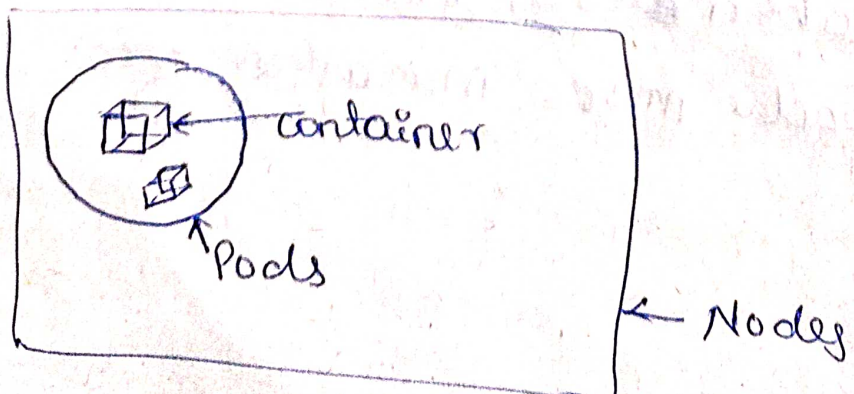 container
Pods
Nodes